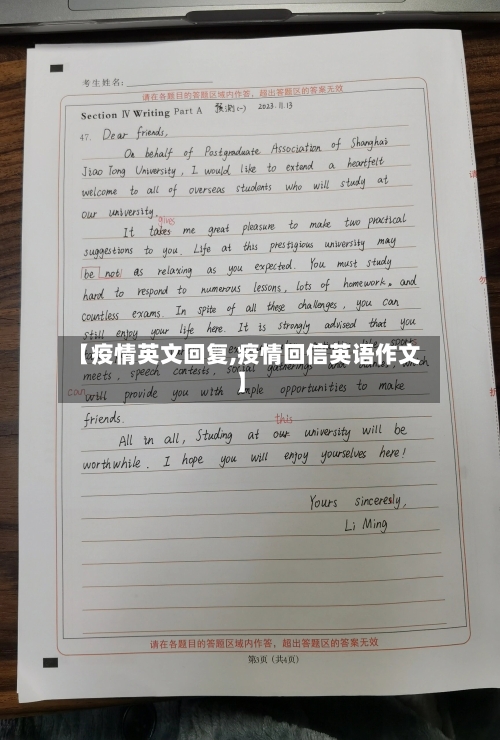 考生姓名:
请在各题目的答题区域内作答，超出答题区的答案无效
Section Ⅳ Writing Part A 预测(一) 2023.11.13
47. Dear friends,
On behalf of Postgraduate Association of Shanghai
Jiao Tong University, I would like to extend a heartfelt
welcome to all of overseas students who will study at
our university.
gives
It takes me great pleasure to make two practical
suggestions to you. Life at this prestigious university may
be not as relaxing as you expected. You must study
hard to respond to numerous lessons, lots of homework, and
countless exams. In spite of all these challenges, you can
still enjoy your life here. It is strongly advised that you
【疫情英文回复,疫情回信英语作文
】
meets, speech contests, social gatherings and which
can will provide you with ample opportunities to make
friends.
this
All in all, Studing at our university will be
worthwhile. I hope you will enjoy yourselves here!
Yours sinceresly,
Li Ming
请在各题目的答题区域内作答，超出答题区的答案无效
第3页（共4页）
请
勿
在